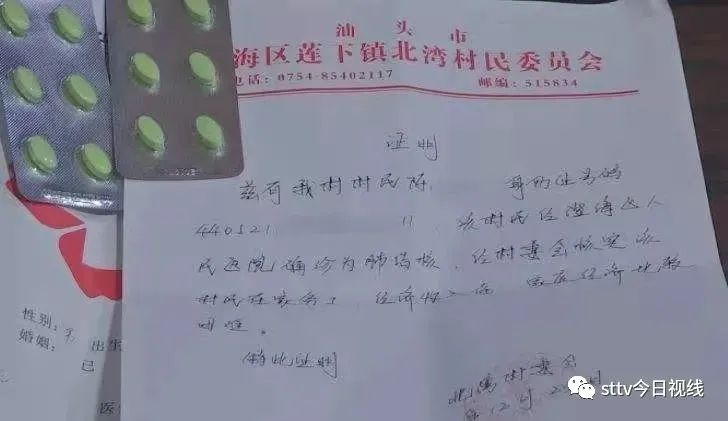 汕头市
海区莲下镇北湾村民委员会
电话：0754-85402117 邮编：515834
证明
兹有我村村民陈 身份证号码
440521 11 该村民经澄海区人
民医院确诊为肺结核，经村委会核实该
村民在家务工 经济收入低 家庭经济比较
困难。
特此证明
北湾村委会
年12月2
性别：男 出生
婚姻：
已
医
sttv今日视线